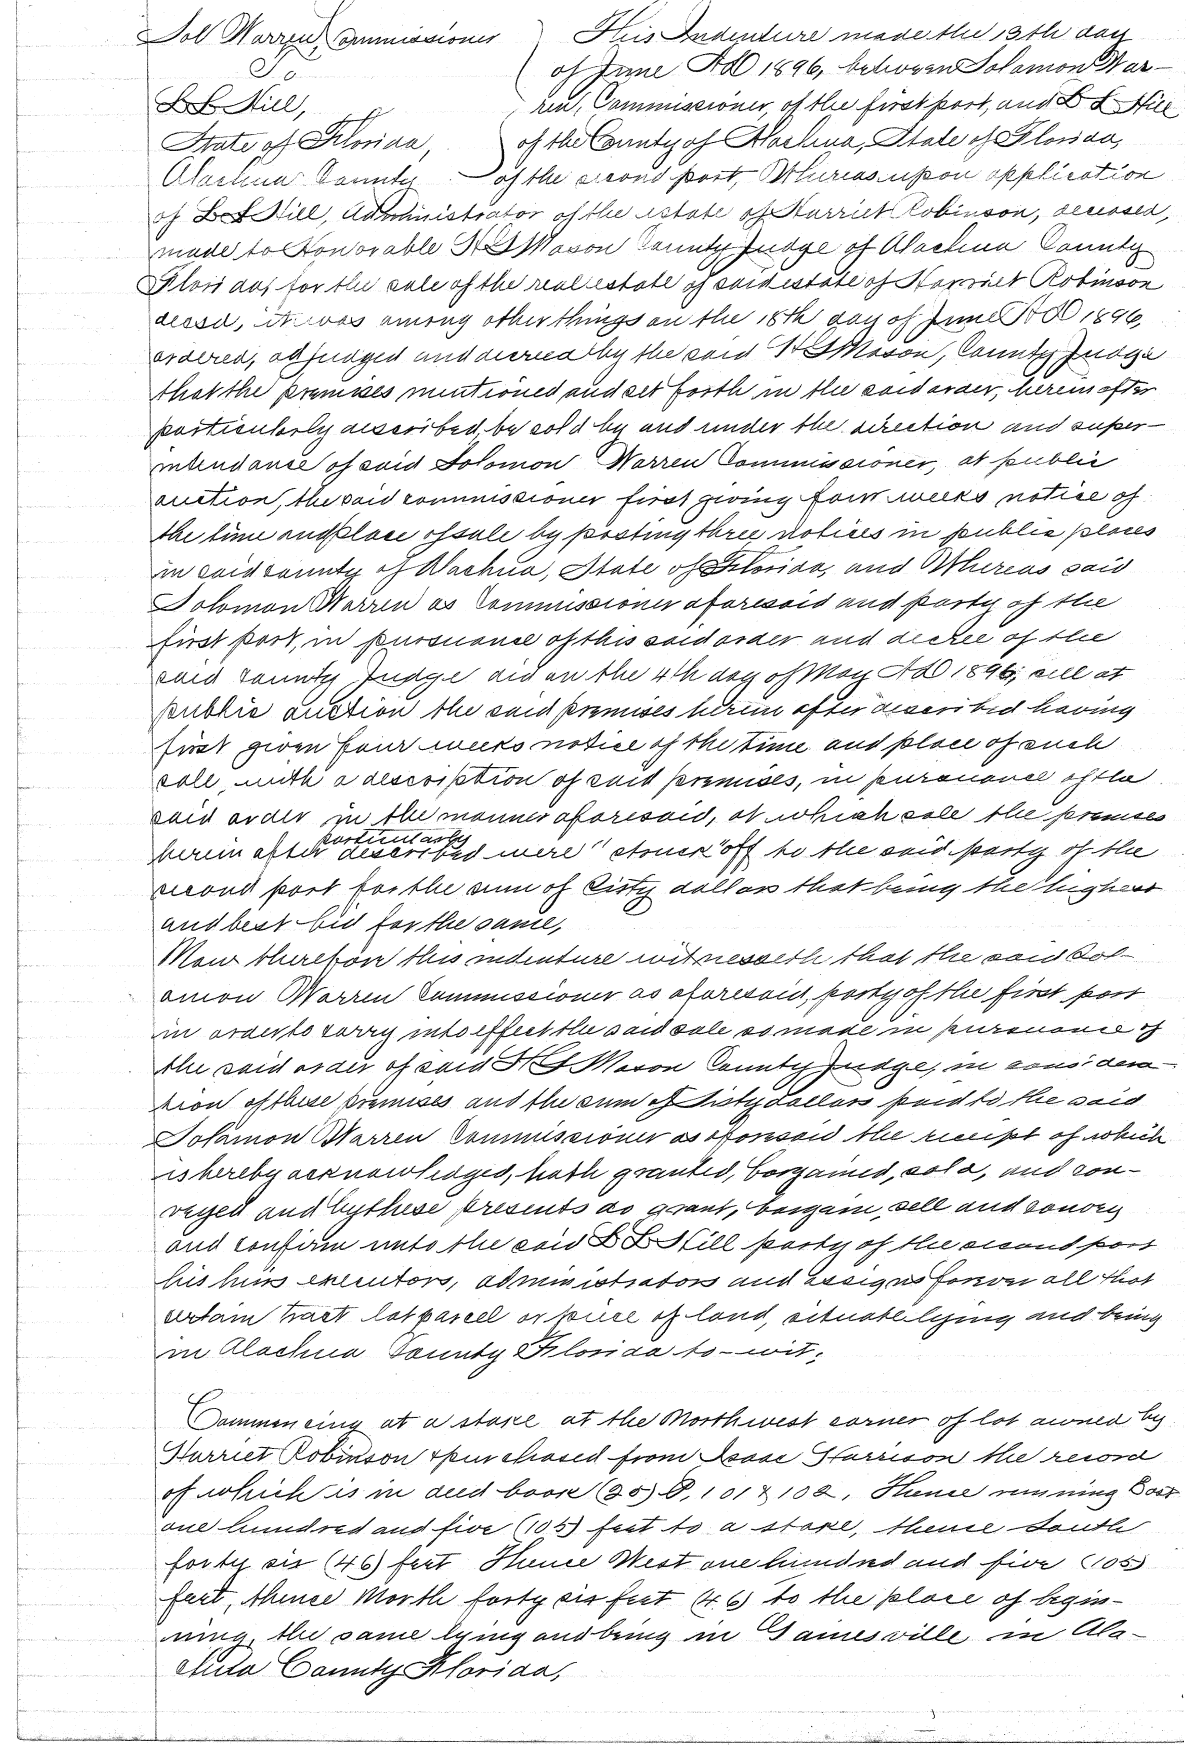 Sol Warren, Commissioner
To
L L Hill,
State of Florida,
Alachua County
This Indenture made the 13th day
of June AD 1896, between Solamon War-
ren, Commissioner, of the first part, and L L Hill
of the County of Alachua, State of Florida,
of the second part, Whereas upon application
of L L Hill, Administrator of the estate of Harriet Robinson, deceased,
made to Honorable H G Mason County Judge of Alachua County
Florida, for the sale of the real estate of said estate of Harriet Robinson
decsd, it was among other things on the 18th day of June AD 1896,
ordered, adjudged and decreed by the said H G Mason, County Judge
that the premises mentioned and set forth in the said order, herein after
particularly described, be sold by and under the direction and super-
intendance of said Solomon Warren Commissioner, at public
auction, the said commissioner first giving four weeks notice of
the time and place of sale by posting three notices in public places
in said county of Alachua, State of Florida, and Whereas said
Solomon Warren as Commissioner aforesaid and party of the
first part, in pursuance of this said order and decree of the
said County Judge did on the 4th day of May AD 1896, sell at
public auction the said premises herein after described having
first given four weeks notice of the time and place of such
sale, with a description of said premises, in pursuance of the
said order in the manner aforesaid, at which sale the premises
herein after particularly described were "struck off" to the said party of the
second part for the sum of Sixty dollars that being the highest
and best bid for the same,
Now therefore this indenture witnesseth that the said Sol-
omon Warren Commissioner as aforesaid, party of the first part
in order to carry into effect the said sale so made in pursuance of
the said order of said H G Mason County Judge, in considera-
tion of these premises and the sum of Sixty dollars paid to the said
Solamon Warren Commissioner as aforesaid the receipt of which
is hereby acknowledged, hath granted, bargained, sold, and con-
veyed and by these presents do grant, bargain, sell and convey
and confirm unto the said L L Hill party of the second part
his heirs executors, administrators and assigns forever all that
certain tract lot parcel or piece of land, situate lying and being
in Alachua County Florida to-wit:
Commencing at a stake at the Northwest corner of lot owned by
Harriet Robinson & purchased from Isaac Harrison the record
of which is in deed book (20) P, 101 & 102, Thence running East
one hundred and five (105) feet to a stake, thence South
forty six (46) feet Thence West one hundred and five (105)
feet, thence North forty six feet (46) to the place of begin-
ning, the same lying and being in Gainesville in Ala-
chua County Florida,